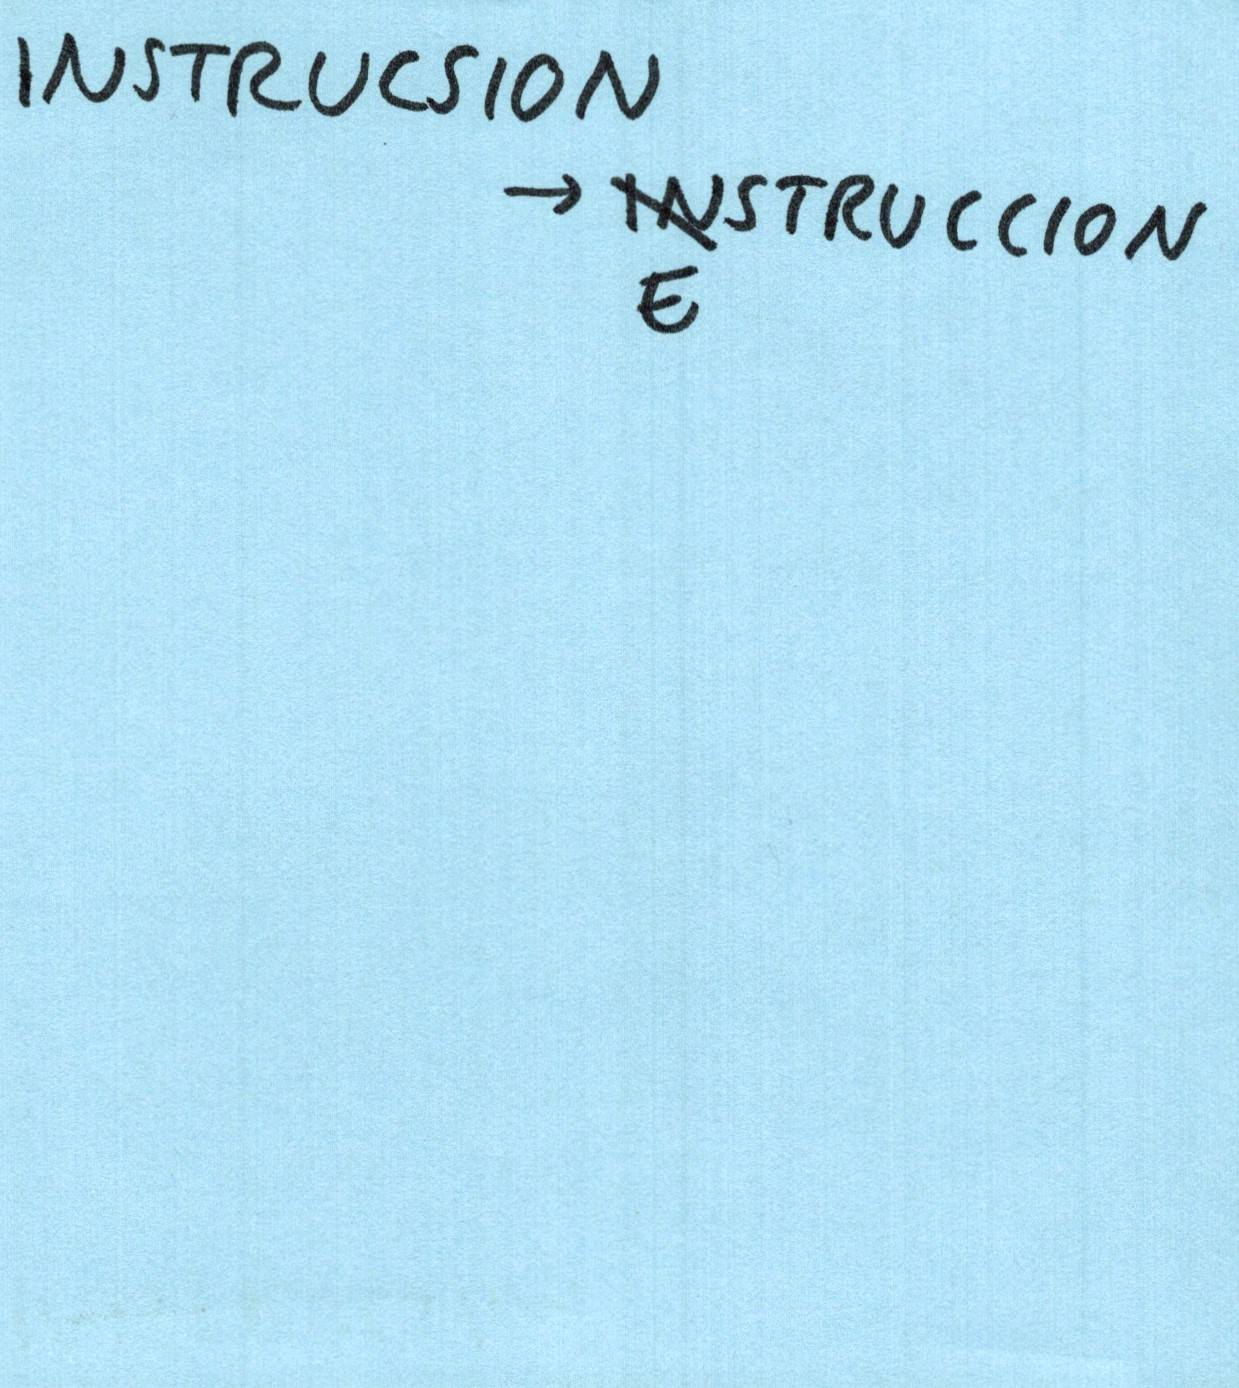 INSTRUCSION
→ INSTRUCCION
E